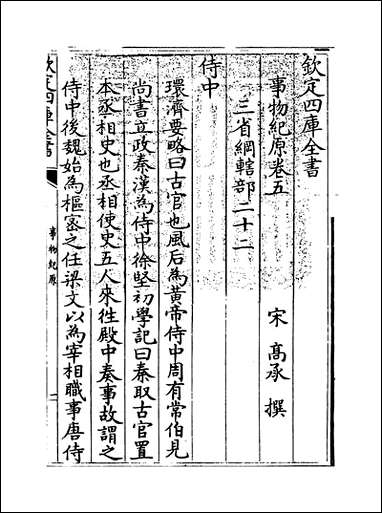 欽定四庫全書
事物紀原卷五
宋 髙承 撰
三省綱轄部二十二
侍中
環濟要略曰古官也風后為黄帝侍中周有常伯見
尚書立政秦漢為侍中徐堅初學記曰秦取古官置
本丞相史也丞相使史五人來徃殿中奏事故謂之
侍中後魏始為樞宻之任梁文以為宰相職事唐侍
欽定四庫全書
事物紀原